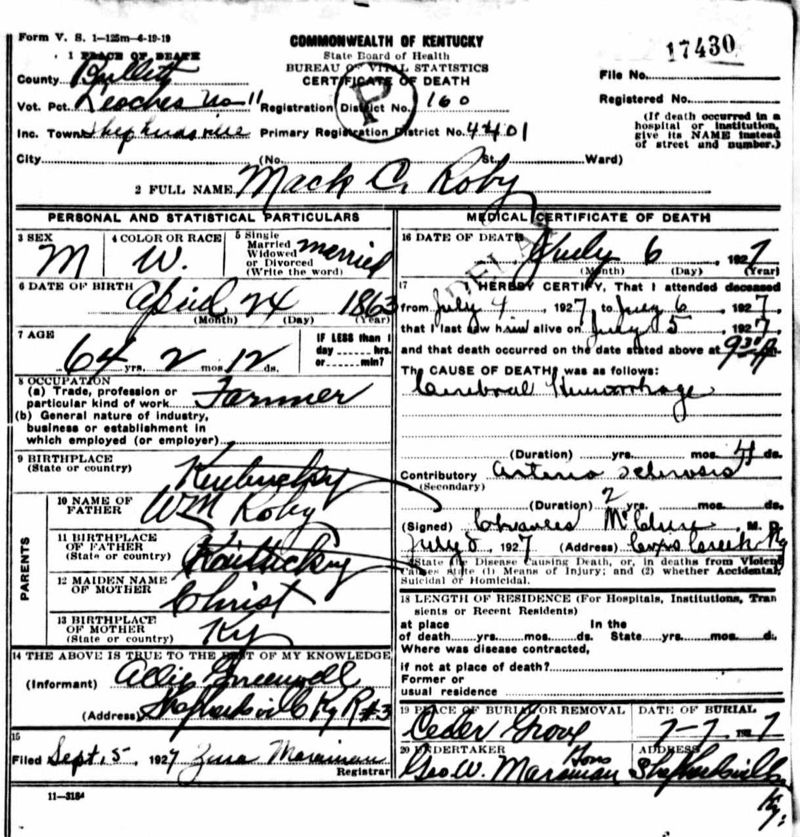 Form V. S. 1—125m—6-19-19
1 PLACE OF DEATH
COMMONWEALTH OF KENTUCKY
State Board of Health
BUREAU OF VITAL STATISTICS
CERTIFICATE OF DEATH
17430
County Bullitt
File No.
Vot. Pct. Leaches No 11
Registration District No. 160
Registered No.
P
(If death occurred in a hospital or institution, give its NAME instead of street and number.)
Inc. Town Shepherdsville
Primary Registration District No. 4401
City (No. St. Ward)
2 FULL NAME Mack C. Roby
PERSONAL AND STATISTICAL PARTICULARS
3 SEX M
4 COLOR OR RACE W.
5 Single Married Widowed or Divorced (Write the word) married
6 DATE OF BIRTH April 24 1863
(Month) (Day) (Year)
7 AGE 64 yrs. 2 mos. 12 ds.
IF LESS than 1 day hrs. or min.?
8 OCCUPATION
(a) Trade, profession or particular kind of work Farmer
(b) General nature of industry, business or establishment in which employed (or employer)
9 BIRTHPLACE (State or country) Kentucky
PARENTS
10 NAME OF FATHER Wm Roby
11 BIRTHPLACE OF FATHER (State or country) Kentucky
12 MAIDEN NAME OF MOTHER Christ
13 BIRTHPLACE OF MOTHER (State or country) Ky
14 THE ABOVE IS TRUE TO THE BEST OF MY KNOWLEDGE
(Informant) Allie Greenwell
(Address) Shepherdsville Ky R#3
15
Filed Sept. 5, 1927 Zura Maraman
Registrar
11—3184
MEDICAL CERTIFICATE OF DEATH
16 DATE OF DEATH July 6, 1927
(Month) (Day) (Year)
DELAY
17 I HEREBY CERTIFY, That I attended deceased
from July 4, 1927, to July 6, 1927,
that I last saw him alive on July 5, 1927
and that death occurred on the date stated above at 9
The CAUSE OF DEATH was as follows:
Cerebral Hemorrhage
(Duration) yrs. mos. ds.
Contributory (Secondary) Arterio sclerosis
(Duration) 2 yrs. mos. ds.
(Signed) Charles McClure M. D.
July 8, 1927 (Address) Coxs Creek Ky
State the Disease Causing Death, or, in deaths from Violent Causes state (1) Means of Injury; and (2) whether Accidental, Suicidal or Homicidal.
18 LENGTH OF RESIDENCE (For Hospitals, Institutions, Transients or Recent Residents)
at place of death yrs. mos. ds. In the State yrs. mos. ds.
Where was disease contracted, if not at place of death?
Former or usual residence
19 PLACE OF BURIAL OR REMOVAL Ceder Grove
DATE OF BURIAL 7-7 1927
20 UNDERTAKER Geo W. Maraman Sons
ADDRESS Shepherdsville Ky.